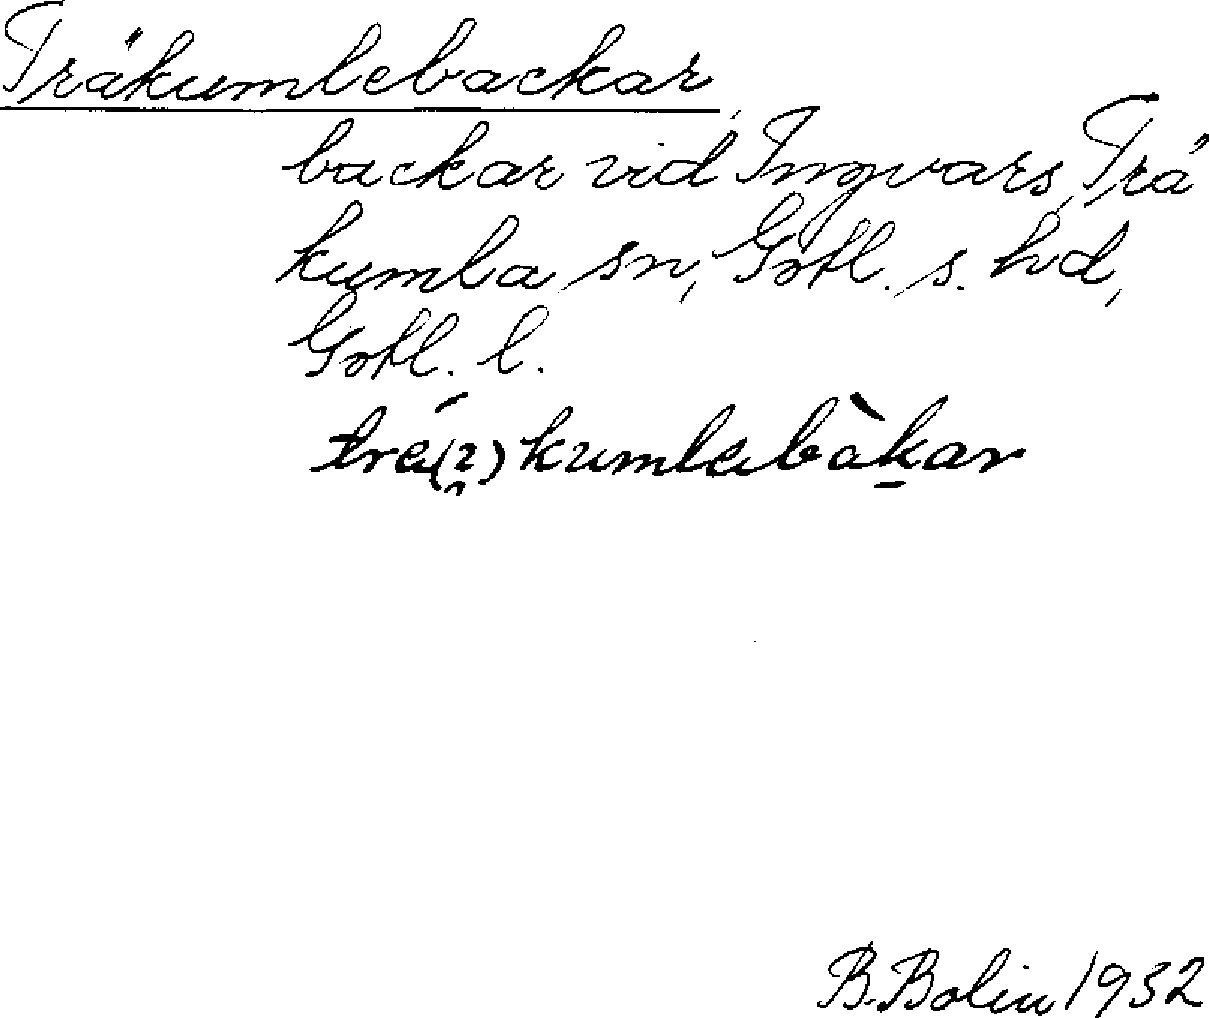 Träkumlebackar,
backar vid Ingvars, Trä
kumla sn, Gotl. s. hd,
Gotl. l.
tré(2)kumlabàkar
B. Bolin 1932